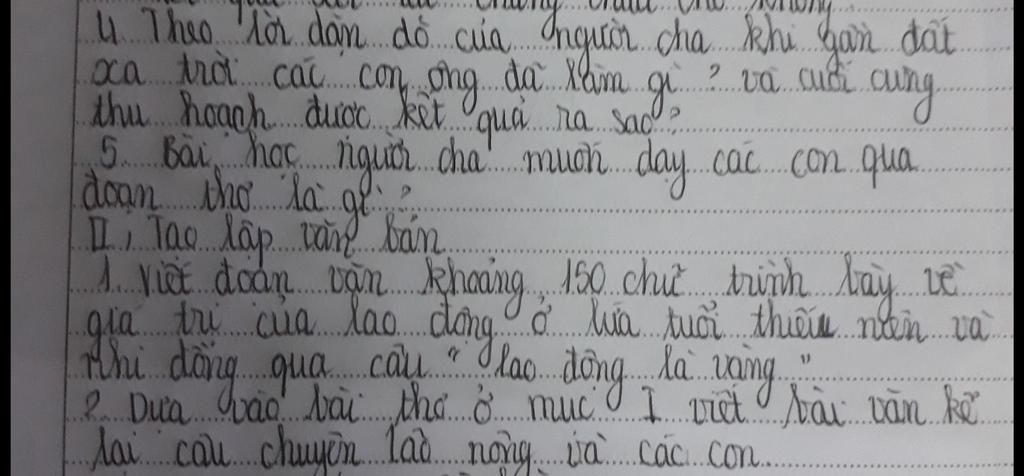 4. Theo lời dặn dò của người cha khi gần đất
xa trời các con ông đã làm gì? và cuối cùng
thu hoạch được kết quả ra sao?
5. Bài học người cha muốn dạy các con qua
đoạn thơ là gì?
II, Tạo lập văn bản
1. Viết đoạn văn khoảng 150 chữ trình bày về
giá trị của lao động ở lứa tuổi thiếu niên và
nhi đồng qua câu "lao động là vàng"
2. Dựa vào bài thơ ở mục I viết bài văn kể
lại câu chuyện lão nông và các con